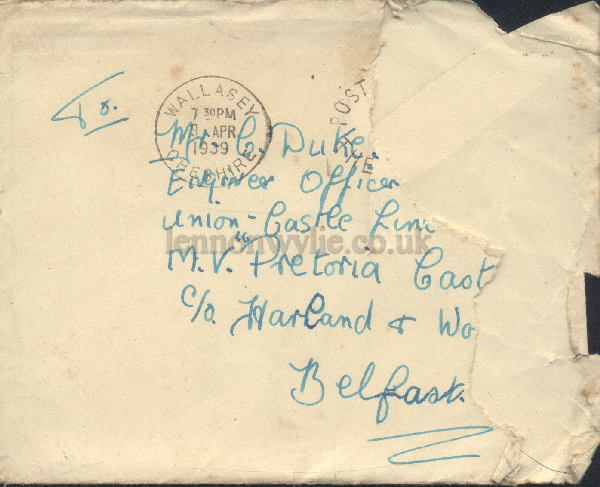 To.
WALLASEY
7 30PM
APR
1939
CHESHIRE
POST
Mr. C. Duke
Engineer Officer
Union-Castle Line
M.V. "Pretoria Cast
c/o. Harland & Wo
Belfast.
lennonwylie.co.uk